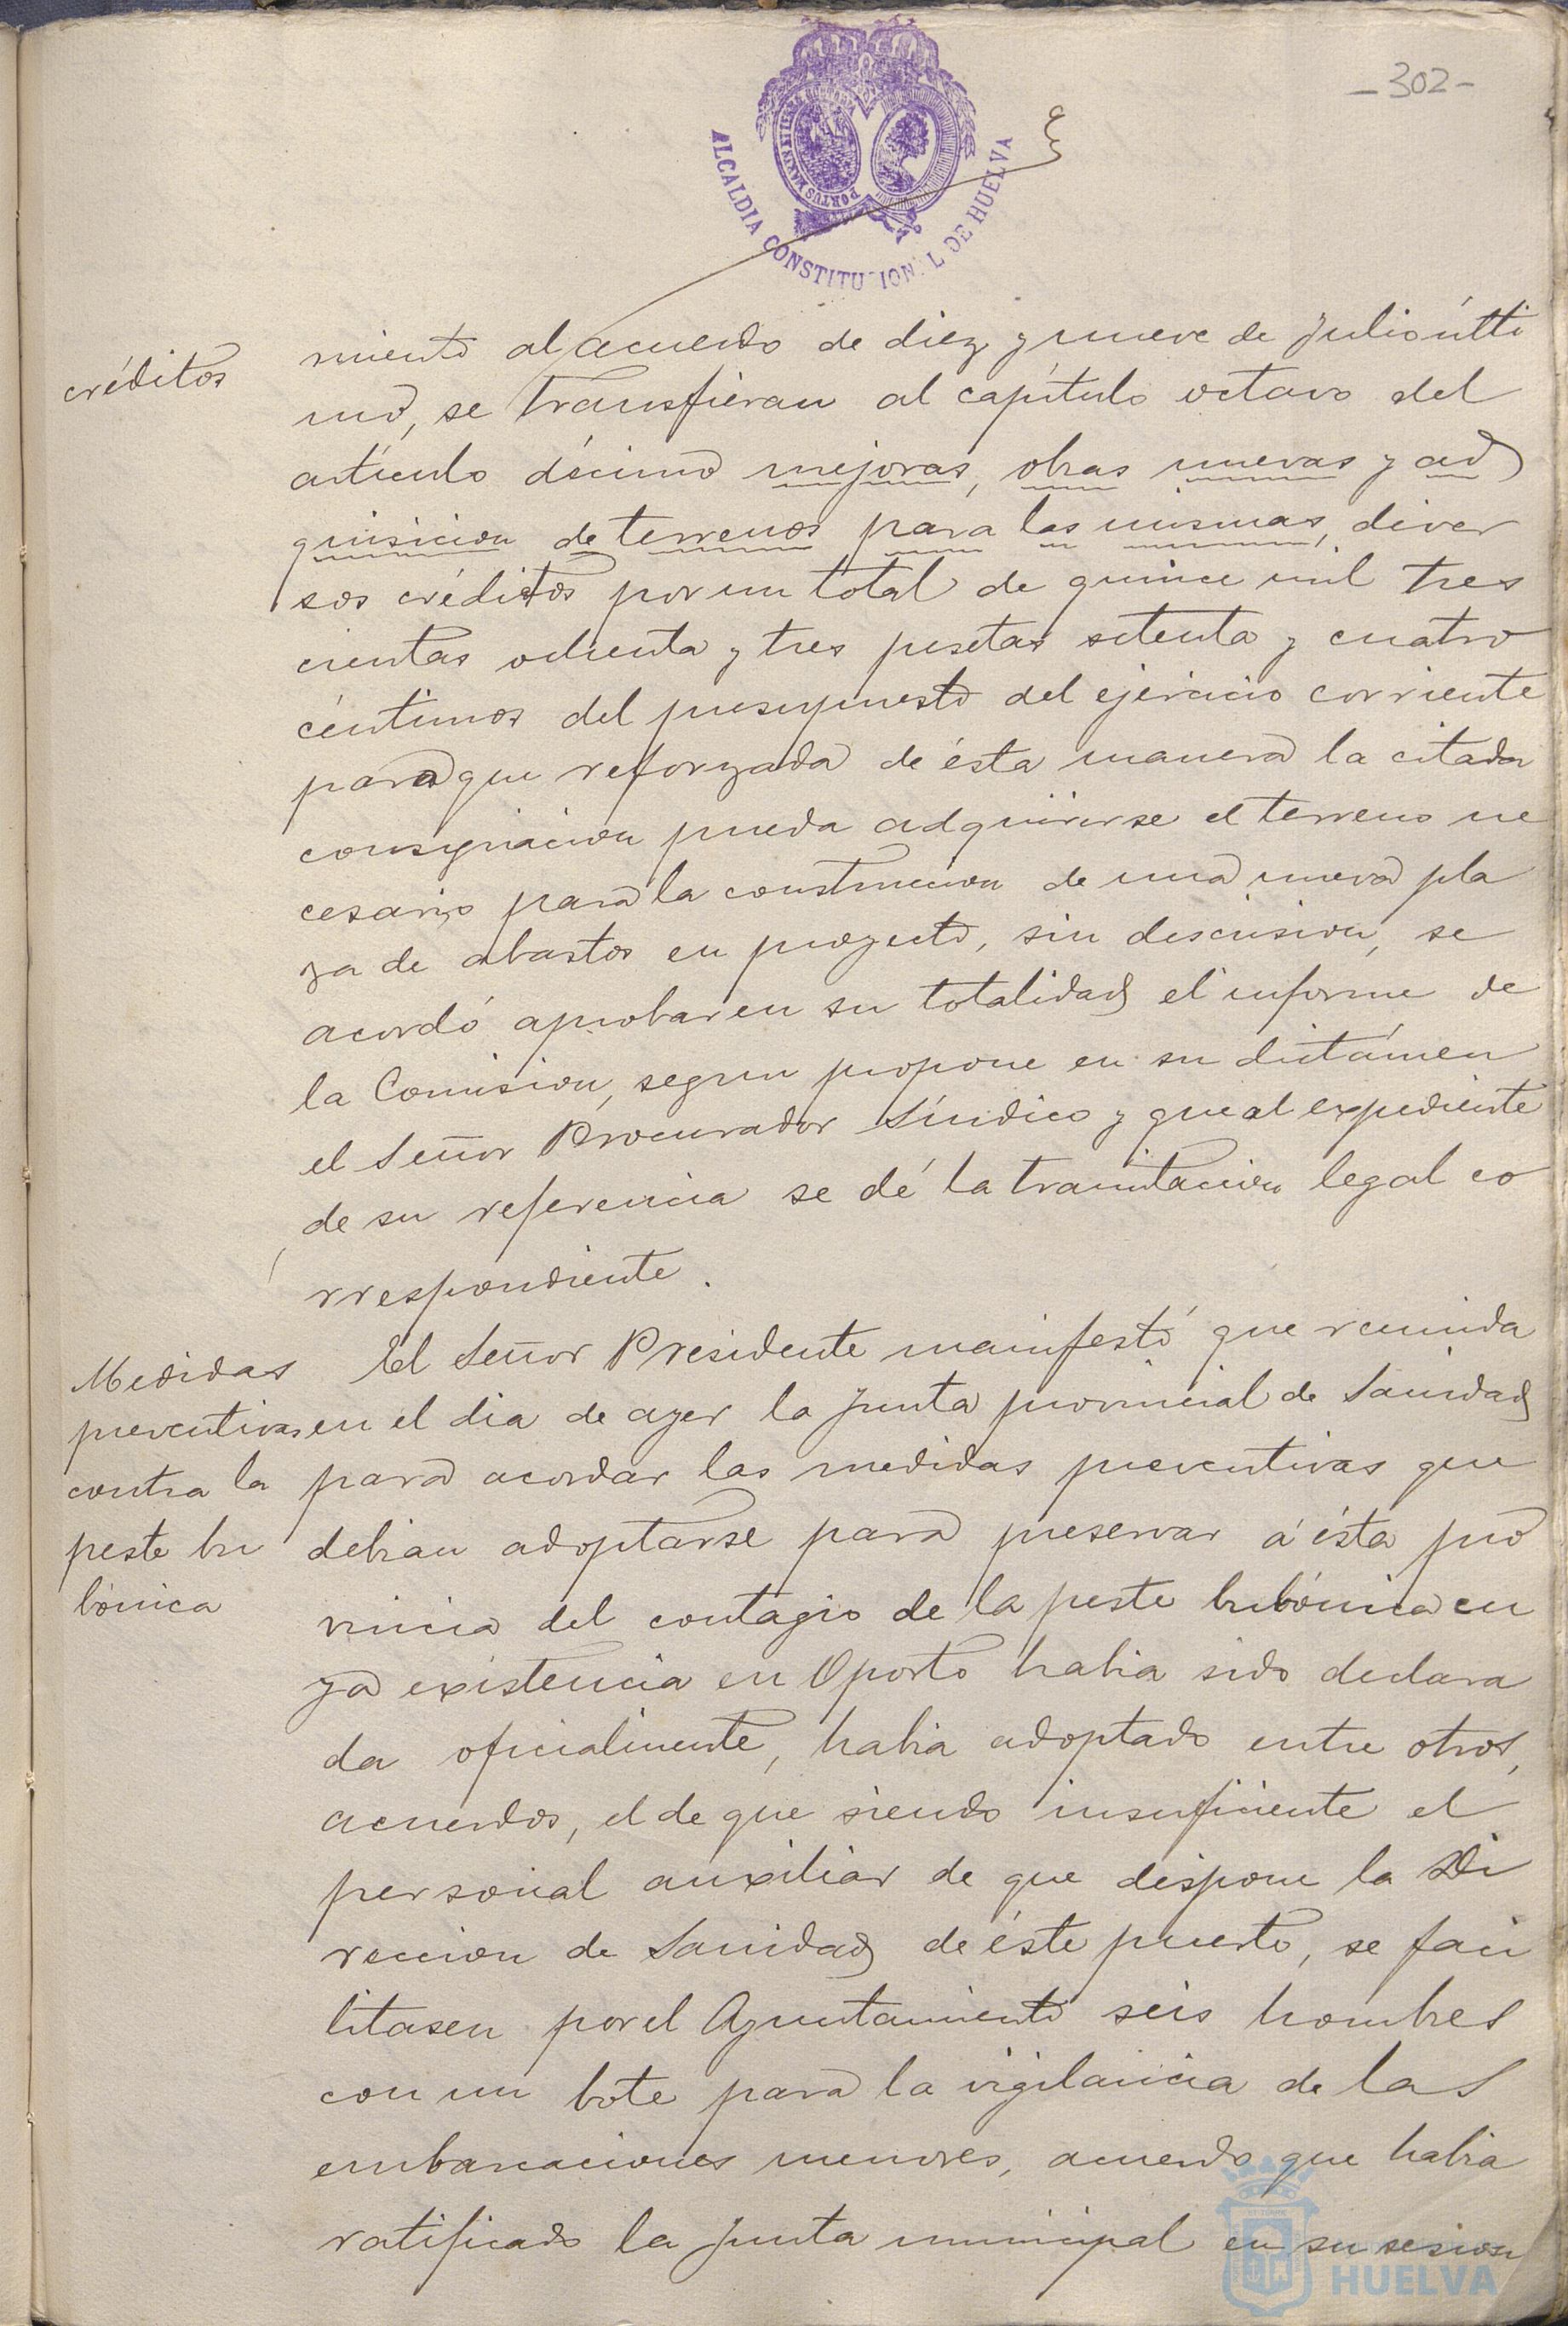 -302-
ALCALDIA CONSTITUCIONAL DE HUELVA
PORTUS MARIS
créditos
miento al acuerdo de diez y nueve de Julio últi
mo, se transfieran al capítulo octavo del
artículo décimo mejoras, obras nuevas y ad
quisicion de terrenos para las mismas, diver
sos créditos por un total de quince mil tres
cientas ochenta y tres pesetas setenta y cuatro
céntimos del presupuesto del ejercicio corriente
para que reforzada de ésta manera la citada
consignacion pueda adquirirse el terreno ne
cesario para la construccion de una nueva pla
za de abastos en proyecto, sin descusion, se
acordó aprobar en su totalidad el informe de
la Comision, segun propone en su dictámen
el Señor Procurador Síndico y que al expediente
de su referencia se dé la tramitacion legal co
rrespondiente.
Medidas
preventivas
contra la
peste bu
bónica
El Señor Presidente manifestó que reunida
en el dia de ayer la Junta provincial de Sanidad
para acordar las medidas preventivas que
debian adoptarse para preservar á ésta pro
vincia del contagio de la peste bubónica cu
ya existencia en Oporto habia sido declara
da oficialmente, habia adoptado entre otros,
acuerdos, el de que siendo insuficiente el
personal auxiliar de que dispone la Di
reccion de Sanidad de éste puerto, se faci
litasen por el Ayuntamiento seis hombres
con un bote para la vigilancia de las
embarcaciones menores, acuerdo que habia
ratificado la Junta municipal en su sesion
HUELVA